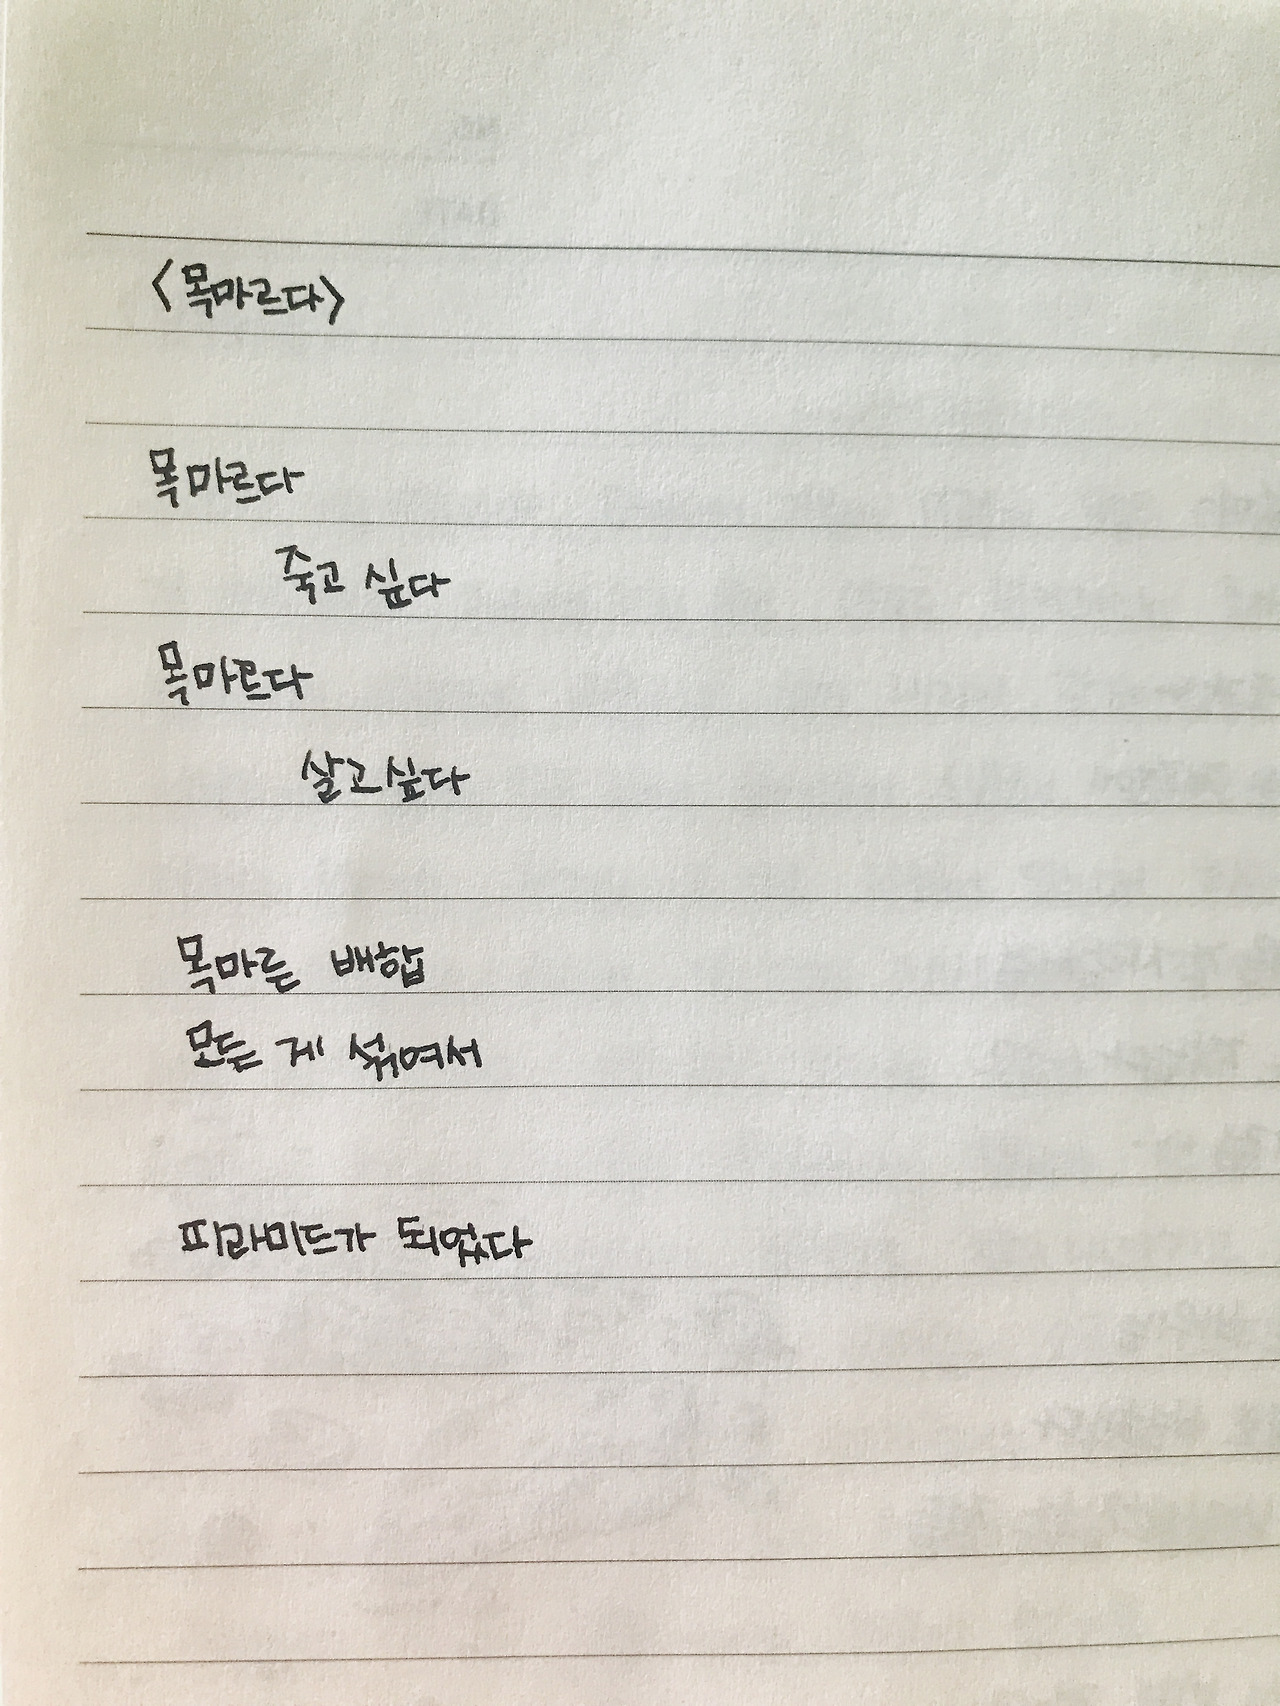 <목마르다>
목마르다
죽고 싶다
목마르다
살고싶다
목마른 배합
모든 게 섞여서
피라미드가 되었다